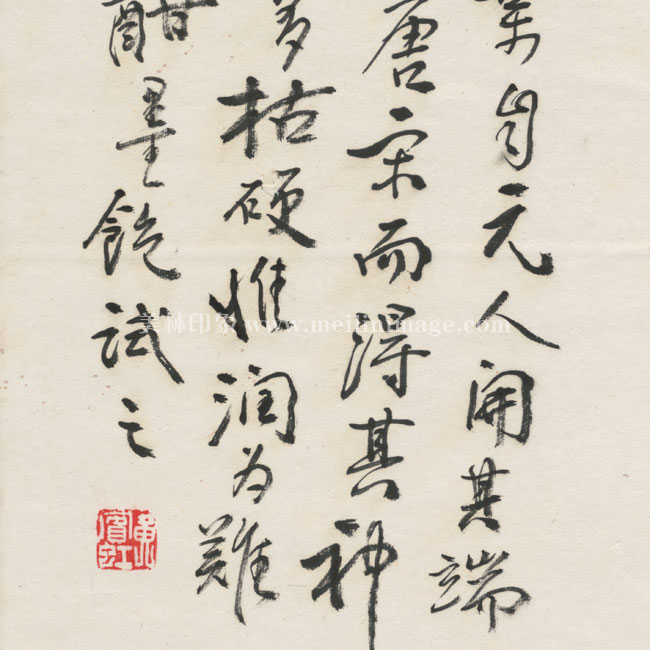 自元人開其端
唐宋而得其神
多枯硬惟润为難
酣墨飽試之
黄賓虹
美林印象 www.meilinimage.com